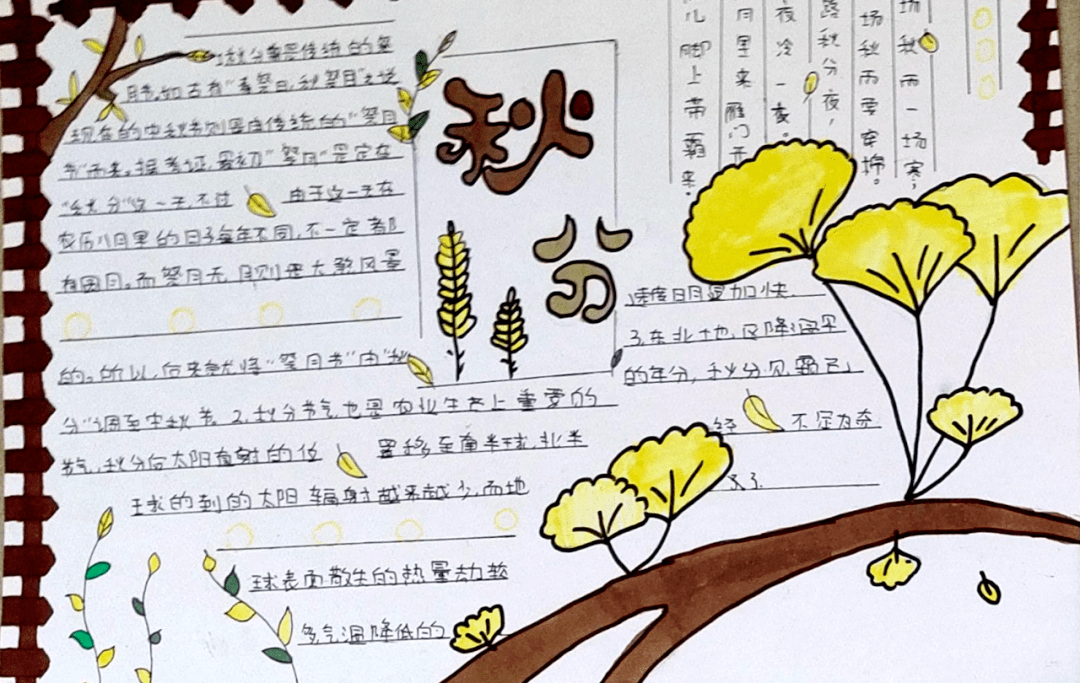 秋分
1.秋分曾是传统的祭
月节,如古有"春祭日,秋祭月"之说
现在的中秋节则是由传统的"祭月
节"而来。据考证,最初"祭月"是定在
"秋分"这一天,不过由于这一天在
农历八月里的日子每年不同,不一定都
有圆月。而祭月无月则是大煞风景
的。所以,后来就将"祭月节"由"秋
分"调至中秋节。2.秋分节气也是农业生产上重要的
节气,秋分后太阳直射的位置移至南半球,北半
球的到的太阳辐射越来越少,而地
球表面散失的热量却较
多气温降低的
速度明显加快.
3.东北地,区降温早
的年分,秋分见霜已
经不足为奇
了.
场秋雨一场寒;
场秋雨要穿棉。
路秋分夜,
夜冷一夜。
月里来雁门开
儿脚上带霜来。